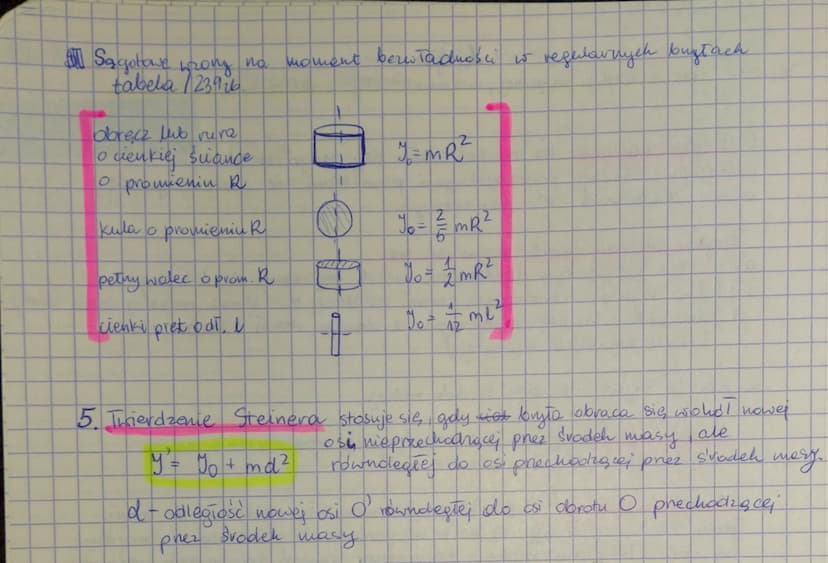 Są gotowe wzory na moment bezwładności w regularnych bryłach
tabela / 239 zb
obręcz lub rura
o cienkiej ściance
o promieniu R
y₀ = mR²
kula o promieniu R
y₀ = 2/5 mR²
pełny walec o prom. R
y₀ = 1/2 mR²
cienki pręt o dł. l
y₀ = 1/12 ml²
5. Twierdzenie Steinera stosuje się, gdy bryła obraca się wokół nowej
osi, nieprzechodzącej przez środek masy, ale
y' = y₀ + md² równoległej do osi przechodzącej przez środek masy.
d - odległość nowej osi O' równoległej do osi obrotu O przechodzącej
przez środek masy